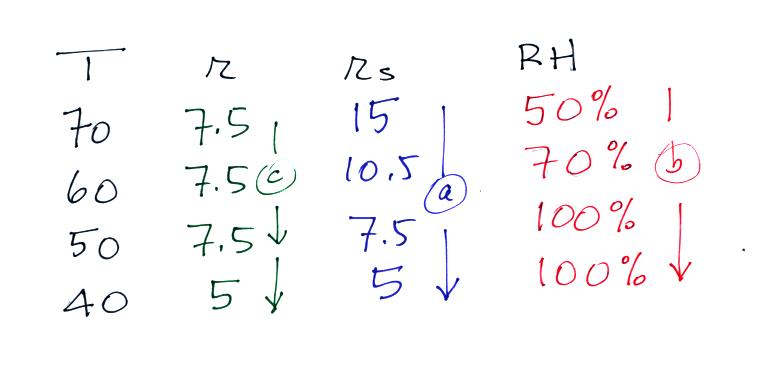 T r rs RH
70 7.5 15 50%
60 7.5 c 10.5 a 70% b
50 7.5 7.5 100%
40 5 5 100%